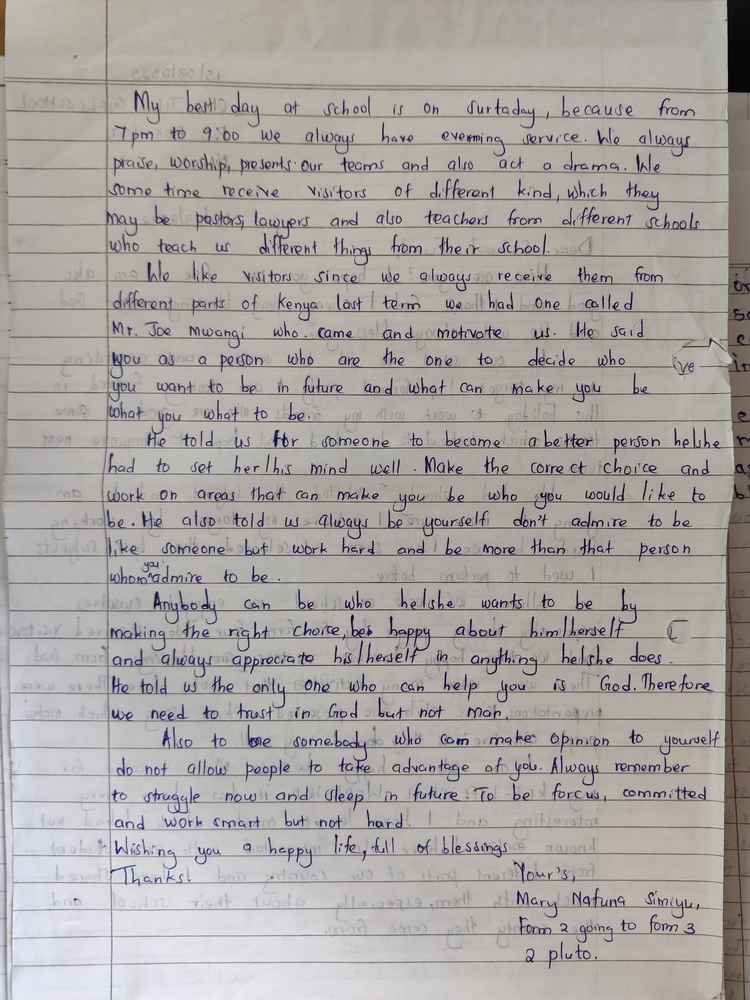 My best day at school is on surtaday, because from
7pm to 9:00 we always have evenming service. We always
praise, worship, presents our teams and also act a drama. We
some time receive visitors of different kind, which they
may be pastors, lawyers and also teachers from different schools
who teach us different things from their school.
We like visitors since we always receive them from
different parts of Kenya last term we had one called
Mr. Joe Mwangi who came and motivate us. He said
you as a person who are the one to decide who
you want to be in future and what can make you be
what you what to be.
He told us for someone to become a better person he/she
had to set her/his mind well. Make the correct choice and
work on areas that can make you be who you would like to
be. He also told us always be yourself don't admire to be
like someone but work hard and be more than that person
whom you admire to be.
Anybody can be who he/she wants to be by
making the right choice, be happy about him/herself
and always appreciate his/herself in anything he/she does.
He told us the only one who can help you is God. Therefore
we need to trust in God but not man.
Also to be somebody who can make opinion to yourself
do not allow people to take advantage of you. Always remember
to struggle now and sleep in future. To be forcus, committed
and work smart but not hard.
Wishing you a happy life, full of blessings
Thanks.
Your's,
Mary Nafuna Simiyu,
Form 2 going to form 3
2 pluto.